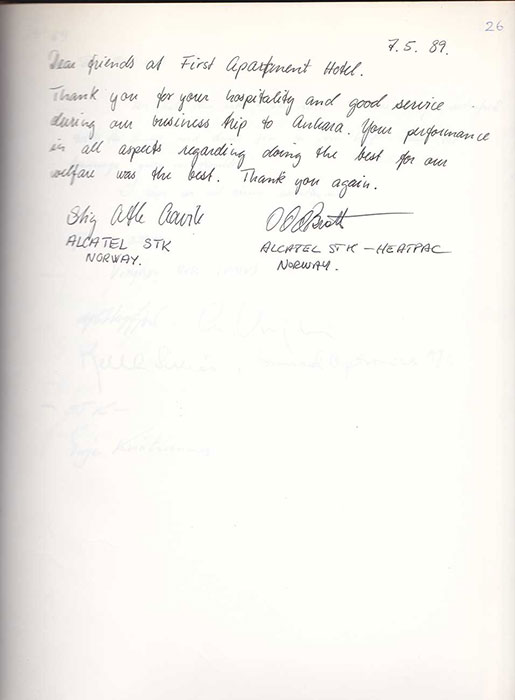 26
7.5.89.
Dear friends at First Apartment Hotel.
Thank you for your hospitality and good service
during our business trip to Ankara. Your performance
in all aspects regarding doing the best for our
welfare was the best. Thank you again.
Stig Atle
ALCATEL STK
NORWAY.
ALCATEL STK - HEATPAC
NORWAY.